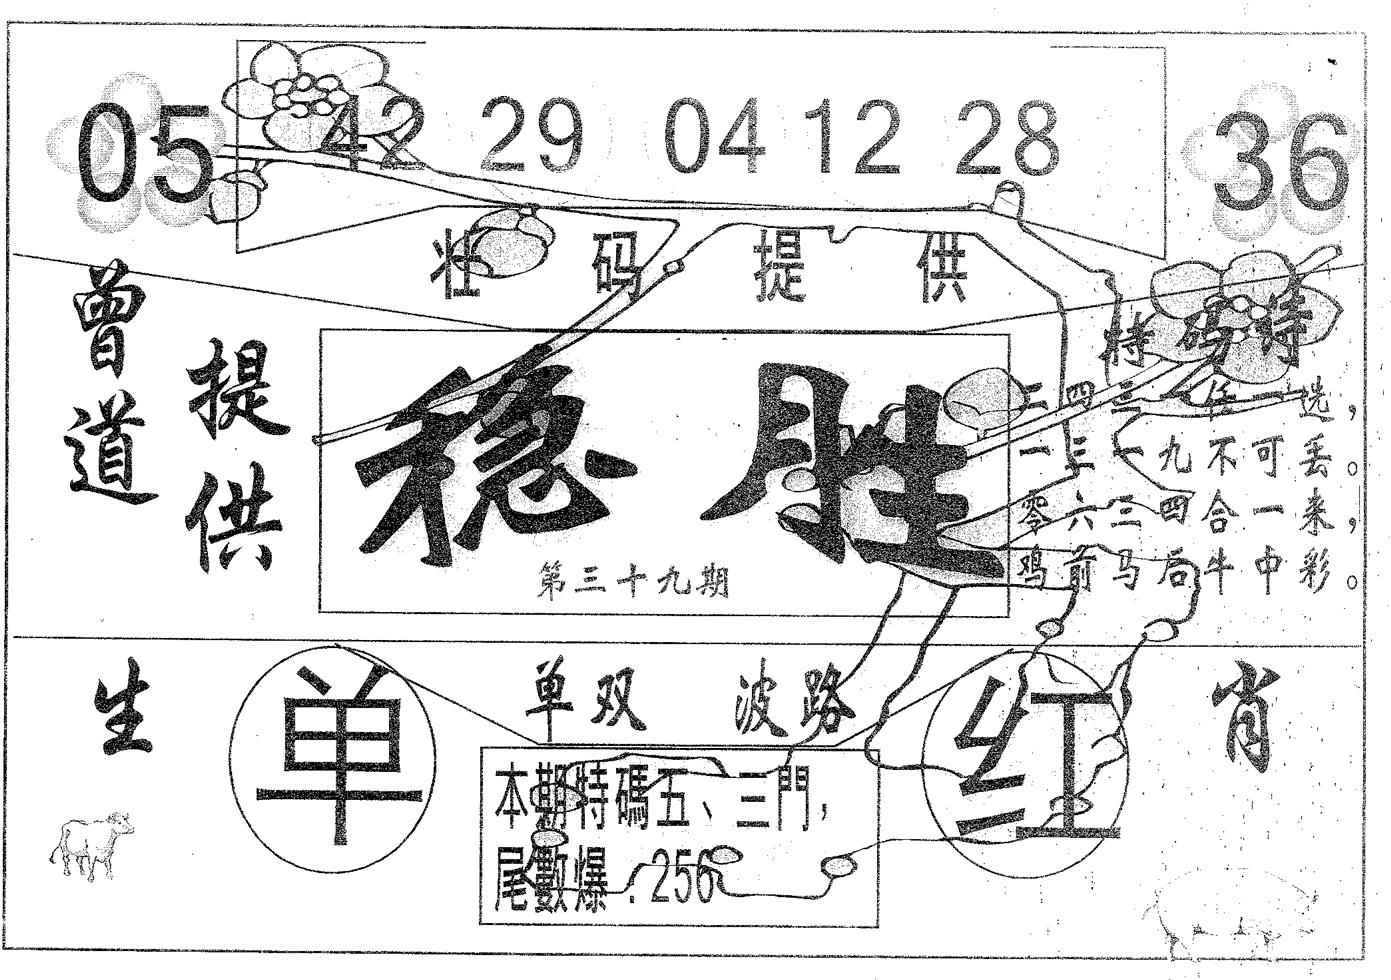 05 42 29 04 12 28 36
壮码提供
曾道
提供
稳胜
第三十九期
特码诗
二四三七任一选，
一三一九不可丢。
零六三四合一来，
鸡前马后牛中彩。
生 单 单双 波路 红 肖
本期特碼五、三門，
尾數爆.256